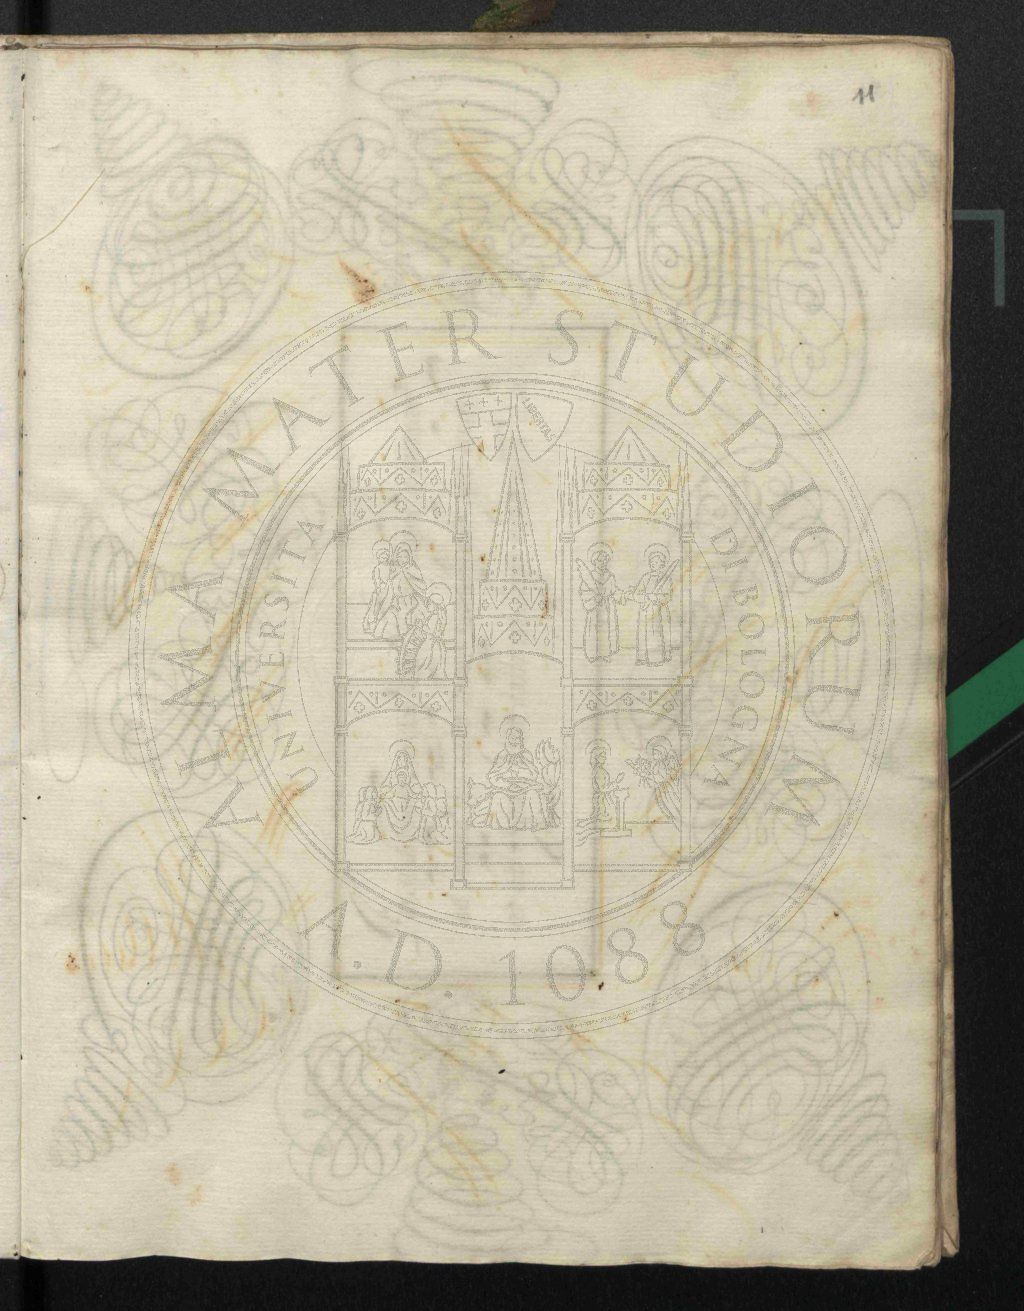 11
ALMA MATER STUDIORUM
UNIVERSITA DI BOLOGNA
LIBERTAS
A.D. 1088